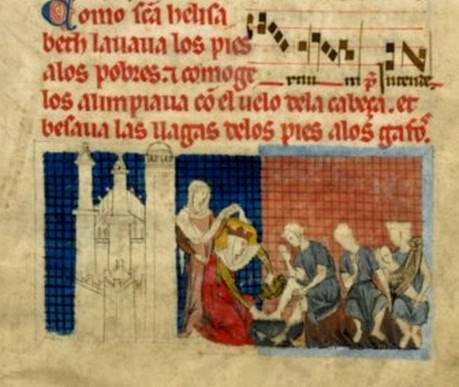 Como sc̃a helisa
beth lauaua los pies
alos pobres. ⁊ comoge
los alimpiaua cõ el uelo dela cabeça. et
besaua las llagas delos pies alos gafoˢ.